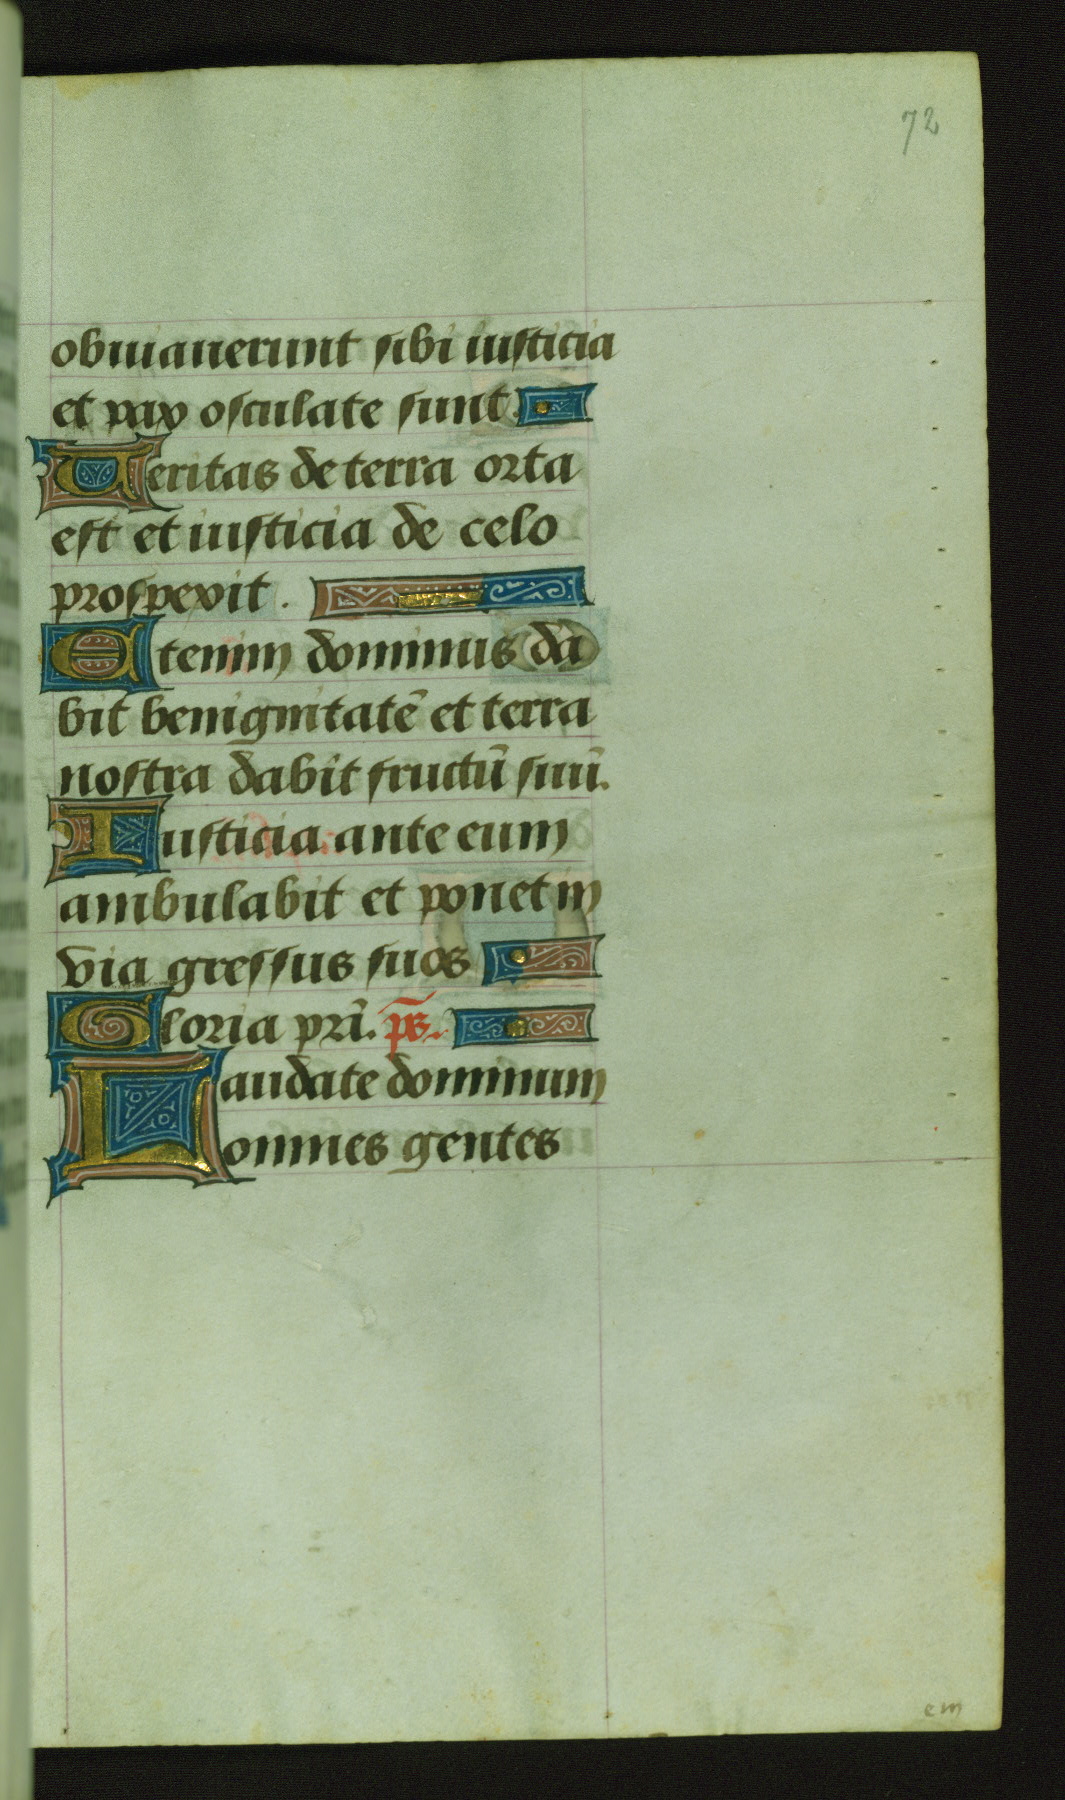 72
obuiauerunt sibi iusticia
et pax osculate sunt.
Ueritas de terra orta
est et iusticia de celo
prospexit.
Etenim dominus da
bit benignitatē et terra
nostra dabit fructū suū.
Iusticia ante eum
ambulabit et ponet in
via gressus suos
Gloria pri̅. ps̅.
Laudate dominum
omnes gentes
em